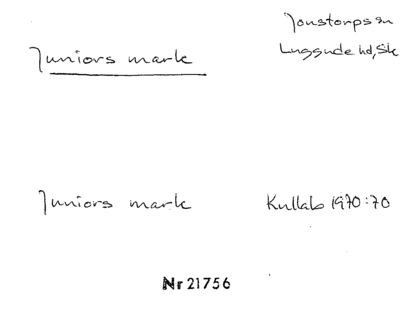 Juniors mark
Jonstorps sn
Luggude hd, Sk
Juniors mark
Kullab 1970:70
Nr 21756